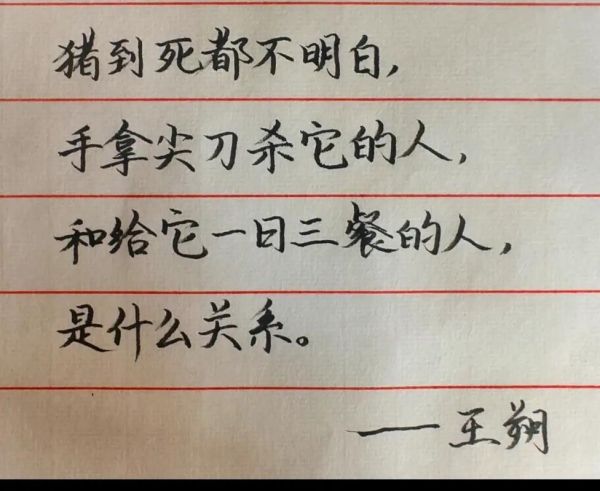 猪到死都不明白，
手拿尖刀杀它的人，
和给它一日三餐的人，
是什么关系。
——王朔